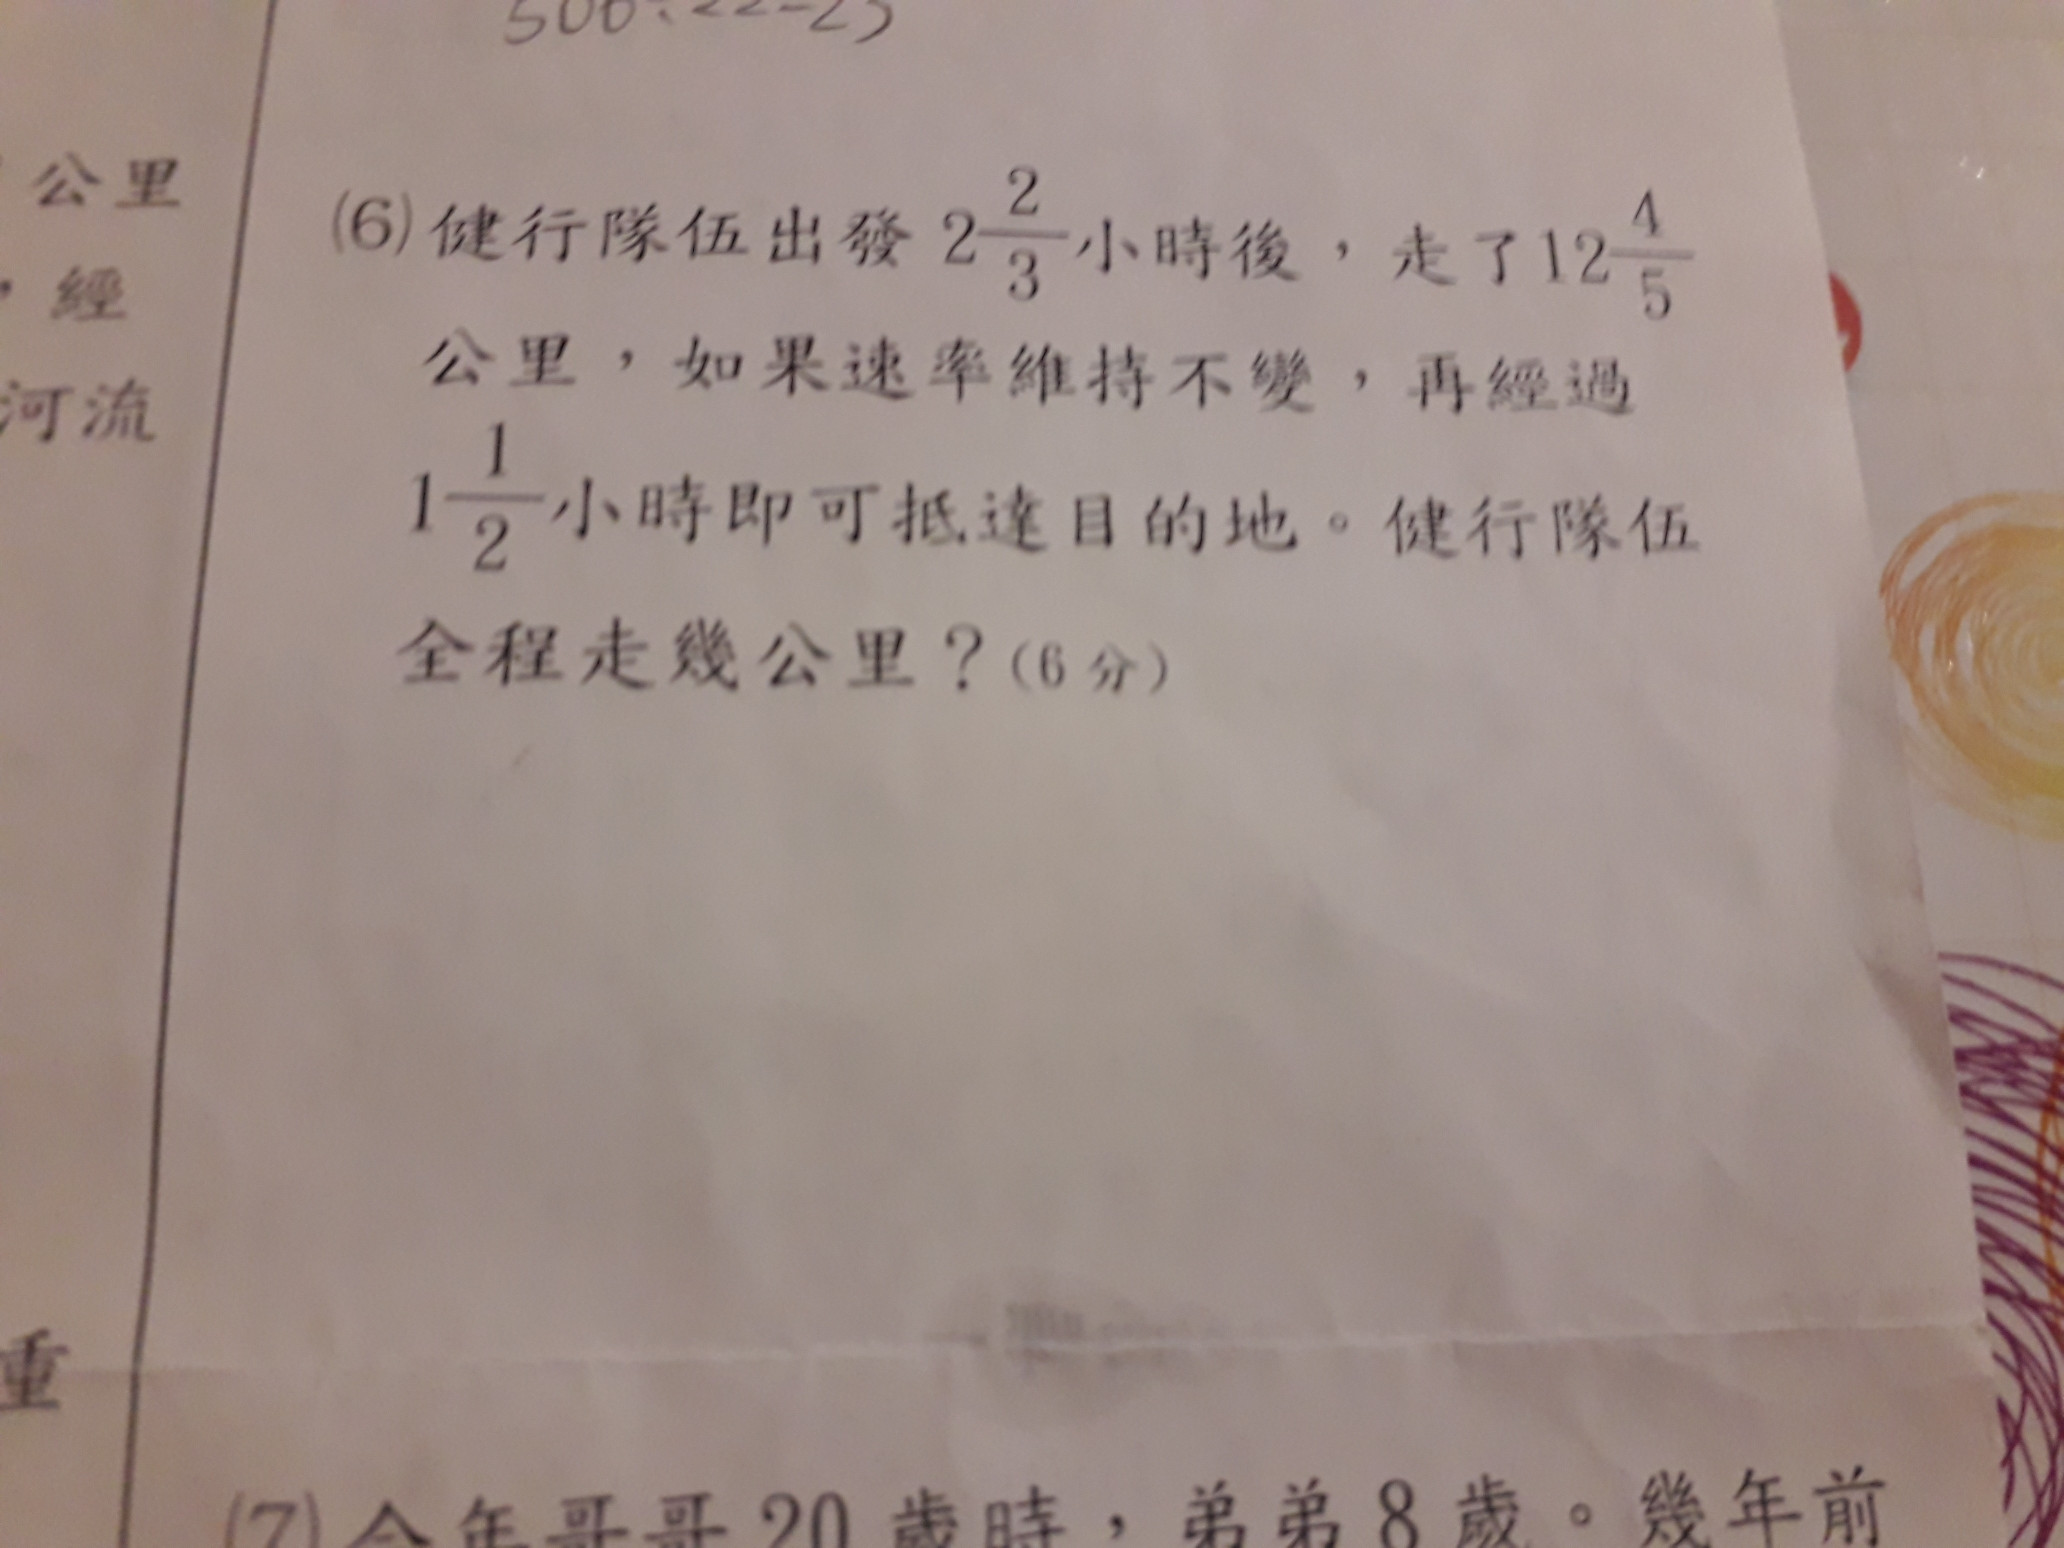 506÷22=23
公里
，經
河流
(6)健行隊伍出發 2 2/3 小時後，走了12 4/5
公里，如果速率維持不變，再經過
1 1/2 小時即可抵達目的地。健行隊伍
全程走幾公里？(6 分)
重
(7)今年哥哥 20 歲時，弟弟 8 歲。幾年前